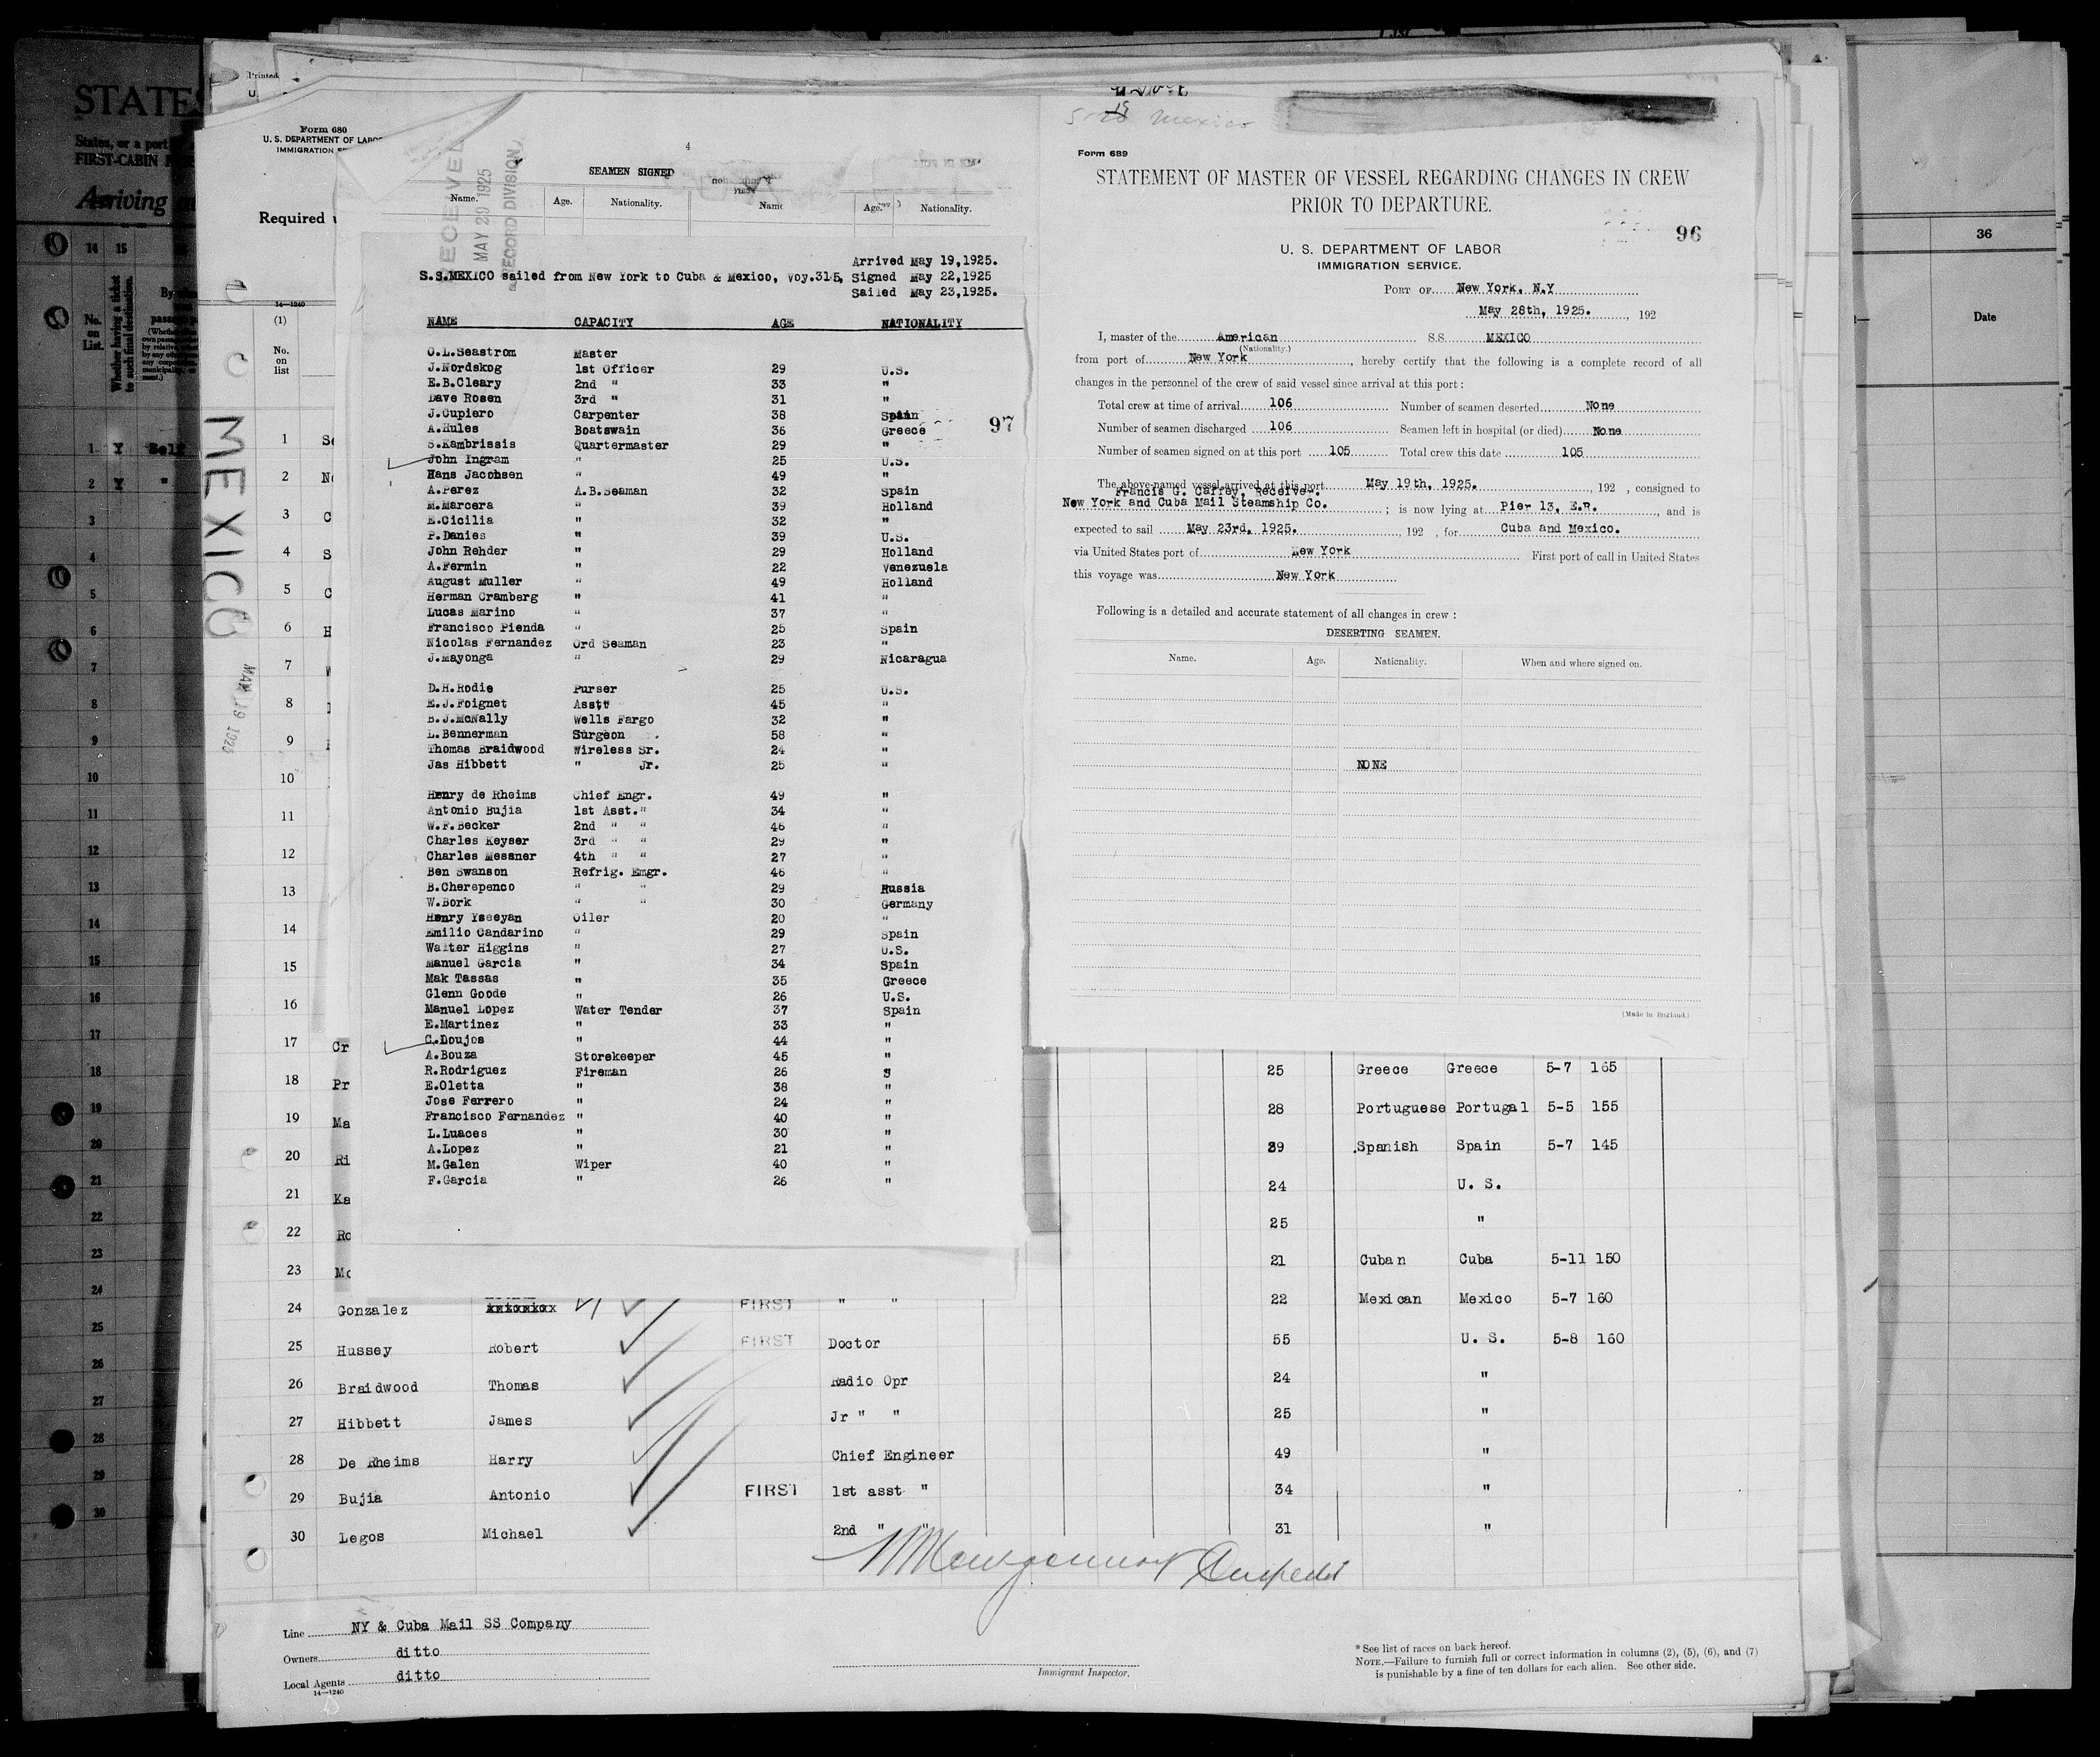 STATES
States, or a port
FIRST-CABIN
Arriving
14 15
No. on List.
Whether having a ticket to such final destination.
1 Y Self
2 Y "
3
4
5
6
7
8
9
10
11
12
13
14
15
16
17
18
19
20
21
22
23
24
25
26
27
28
29
30
36
Date
Printed
Form 680
U. S. DEPARTMENT OF LABOR
IMMIGRATION
Required
14—1240
(1)
No. on list
MEXICO
MAY 19 1925
RECEIVED
MAY 29 1925
RECORD DIVISION
4
SEAMEN SIGNED
Name. Age. Nationality. Name Age. Nationality.
Arrived May 19,1925.
S.S.MEXICO sailed from New York to Cuba & Mexico, Voy.315, Signed May 22,1925
Sailed May 23,1925.
NAME CAPACITY AGE NATIONALITY
O.L.Seastrom Master
J.Nordskog 1st Officer 29 U.S.
E.B.Cleary 2nd " 33 "
Dave Rosen 3rd " 31 "
J.Cupiero Carpenter 38 Spain
A.Hules Boatswain 36 Greece
97
S.Kambrissis Quartermaster 29 "
John Ingram " 25 U.S.
Hans Jacobsen " 49 "
A.Perez A.B.Seaman 32 Spain
M.Marcera " 39 Holland
E.Cicilia " 32 "
P.Danies " 39 U.S.
John Rehder " 29 Holland
A.Fermin " 22 Venezuela
August Muller " 49 Holland
Herman Cramberg " 41 "
Lucas Marino " 37 "
Francisco Pienda " 25 Spain
Nicolas Fernandez Ord Seaman 23 "
J.Mayonga " 29 Nicaragua
D.H.Rodie Purser 25 U.S.
E.J.Foignet Asst" 45 "
B.J.McNally Wells Fargo 32 "
L.Bennerman Surgeon 58 "
Thomas Braidwood Wireless Sr. 24 "
Jas Hibbett " Jr. 25 "
Henry de Rheims Chief Engr. 49 "
Antonio Bujia 1st Asst." 34 "
W.F.Becker 2nd " " 46 "
Charles Keyser 3rd " " 29 "
Charles Messner 4th " " 27 "
Ben Swanson Refrig. Emgr. 46 "
B.Cherepenco " " 29 Russia
W.Bork " " 30 Germany
Henry Yseeyan Oiler 20 "
Emilio Candarino " 29 Spain
Walter Higgins " 27 U.S.
Manuel Garcia " 34 Spain
Mak Tassas " 35 Greece
Glenn Goode " 26 U.S.
Manuel Lopez Water Tender 37 Spain
E.Martinez " 33 "
C.Doujos " 44 "
A.Bouza Storekeeper 45 "
R.Rodriguez Fireman 26 "
E.Oletta " 38 "
Jose Ferrero " 24 "
Francisco Fernandez " 40 "
L.Luaces " 30 "
A.Lopez " 21 "
M.Galen Wiper 40 "
F.Garcia " 26 "
Mexico
Form 689
STATEMENT OF MASTER OF VESSEL REGARDING CHANGES IN CREW
PRIOR TO DEPARTURE.
96
U. S. DEPARTMENT OF LABOR
IMMIGRATION SERVICE.
PORT OF New York, N.Y
May 28th, 1925. , 192
I, master of the American S.S. MEXICO
(Nationality.)
from port of New York , hereby certify that the following is a complete record of all
changes in the personnel of the crew of said vessel since arrival at this port :
Total crew at time of arrival 106 Number of seamen deserted None
Number of seamen discharged 106 Seamen left in hospital (or died) None
Number of seamen signed on at this port 105 Total crew this date 105
The above-named vessel arrived at this port May 19th, 1925. , 192 , consigned to
Francis G. Caffey, Receiver.
New York and Cuba Mail Steamship Co. ; is now lying at Pier 13, E.R. , and is
expected to sail May 23rd, 1925. , 192 , for Cuba and Mexico.
via United States port of New York First port of call in United States
this voyage was New York
Following is a detailed and accurate statement of all changes in crew :
DESERTING SEAMEN.
Name. Age. Nationality. When and where signed on.
NONE
(Made in England.)
1 Se
2 No
3 C
4 S
5 C
6 H
7
8
9
10
11
12
13
14
15
16
17 Cr 25 Greece Greece 5-7 165
18 Pr 28 Portuguese Portugal 5-5 155
19 Ma 39 Spanish Spain 5-7 145
20 Ri 24 U. S.
21 Ka 25 "
22 Ro 21 Cuban Cuba 5-11 150
23 Mc 22 Mexican Mexico 5-7 160
24 Gonzalez FIRST " " 55 U. S. 5-8 160
25 Hussey Robert FIRST Doctor
26 Braidwood Thomas Radio Opr 24 "
27 Hibbett James Jr " " 25 "
28 De Rheims Harry Chief Engineer 49 "
29 Bujia Antonio FIRST 1st asst " 34 "
30 Legos Michael 2nd " " 31 "
Line NY & Cuba Mail SS Company
Owners ditto
Local Agents ditto
14—1240
Immigrant Inspector.
* See list of races on back hereof.
NOTE.—Failure to furnish full or correct information in columns (2), (5), (6), and (7)
is punishable by a fine of ten dollars for each alien. See other side.